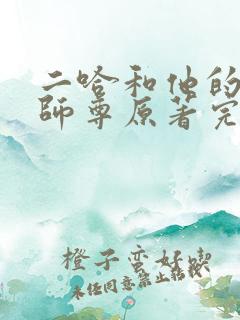 二哈和他的
師尊原著完
橙子蛮好喫
未经同意禁止转载